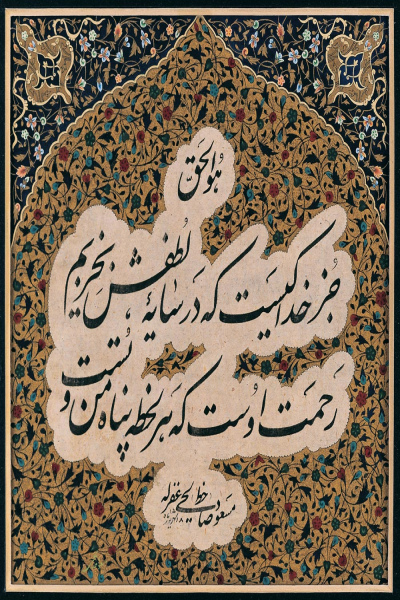 هو الحق
جز خدا کیست که در سایهٔ لطفش بخزیم
رحمت اوست که هر لحظه پناه من و تست
غفر له